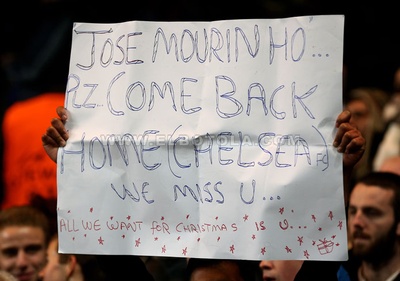 JOSE MOURINHO...
PLZ COME BACK
HOME (CHELSEA FC)
WE MISS U...
ALL WE WANT FOR CHRISTMAS IS U...